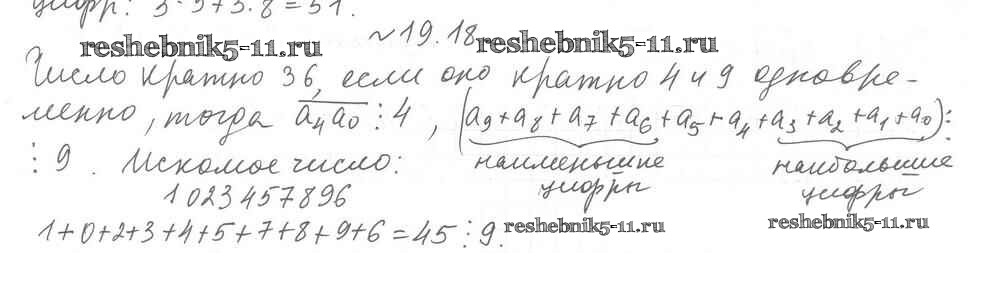 цифр: 3·9+3·8=51.
reshebnik5-11.ru ~19.18 reshebnik5-11.ru
Число кратно 36, если оно кратно 4 и 9 одновре-
менно, тогда a₄a₀ ⋮ 4, (a₉+a₈+a₇+a₆+a₅+a₄+a₃+a₂+a₁+a₀) ⋮
⋮ 9. Искомое число: наименьшие цифры наибольшие цифры
1023457896
1+0+2+3+4+5+7+8+9+6=45 ⋮ 9. reshebnik5-11.ru reshebnik5-11.ru